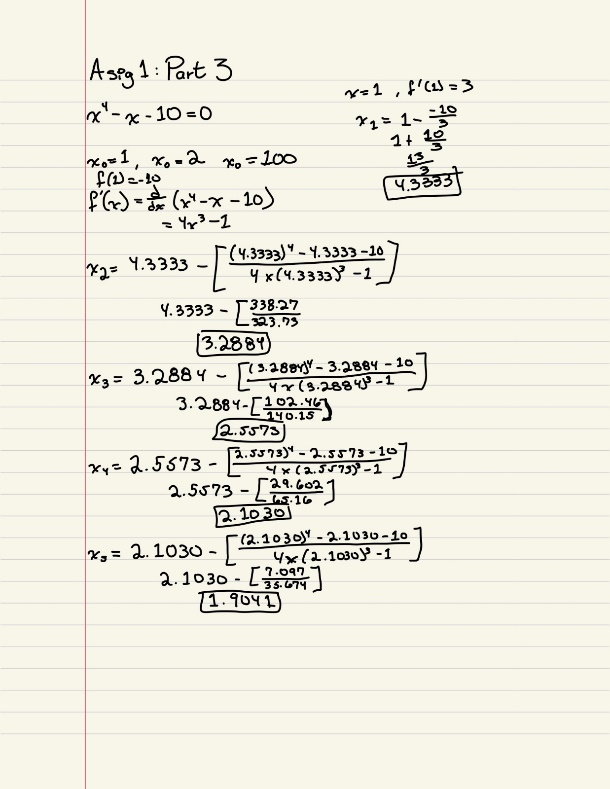 Asig 1: Part 3
x⁴ - x - 10 = 0
x₀=1, x₀=2 x₀=100
f(1)=-10
f'(x) = d/dx (x⁴ - x - 10)
= 4x³ - 1
x=1, f'(1)=3
x₁ = 1 - -10/3
1 + 10/3
13/3
4.3333
x₂ = 4.3333 - [(4.3333)⁴ - 4.3333 - 10 / 4×(4.3333)³ - 1]
4.3333 - [338.27 / 323.73
3.2884
x₃ = 3.2884 - [(3.2884)⁴ - 3.2884 - 10 / 4×(3.2884)³ - 1]
3.2884 - [102.46 / 140.15]
2.5573
x₄ = 2.5573 - [2.5573)⁴ - 2.5573 - 10 / 4×(2.5573)³ - 1]
2.5573 - [29.602 / 65.16]
2.1030
x₅ = 2.1030 - [(2.1030)⁴ - 2.1030 - 10 / 4×(2.1030)³ - 1]
2.1030 - [7.097 / 35.674]
1.9041